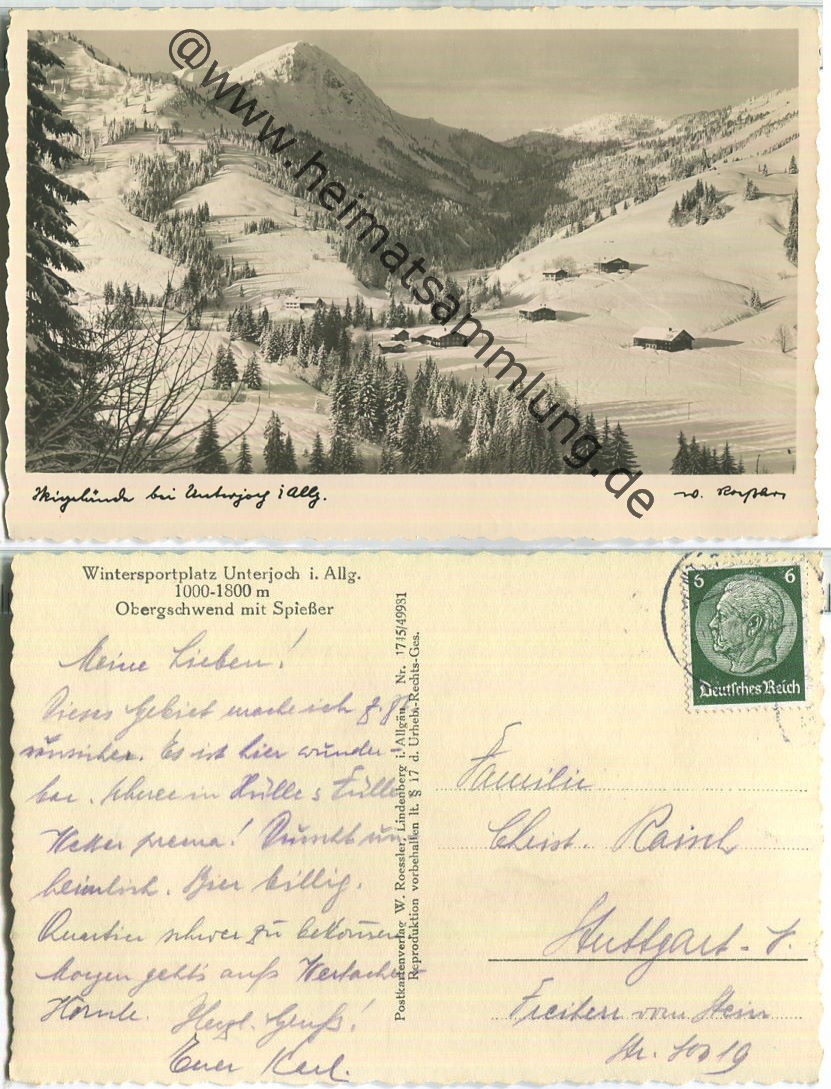 @www.heimatsammlung.de
Skigelände bei Unterjoch i Allg.
Wintersportplatz Unterjoch i. Allg.
1000-1800 m
Obergschwend mit Spießer
Meine Lieben!
Dieses Gebiet mache ich z. Zt.
unsicher. Es ist hier wunder-
bar. Schnee in Hülle & Fülle
Wetter prema! Durscht un-
heimlich. Bier billig.
Quartier schwer zu bekommen
Morgen geht's aufs Wertacher-
Hörnle. Herzl. Gruß!
Euer Karl.
Postkartenverlag W. Roessler, Lindenberg i. Allgäu Nr. 1745/49981
Reproduktion vorbehalten lt. § 17 d. Urheb.-Rechts-Ges.
6 6
Deutsches Reich
Familie
Christ. Raisch
Stuttgart-
Freiherr vom Stein
Str.